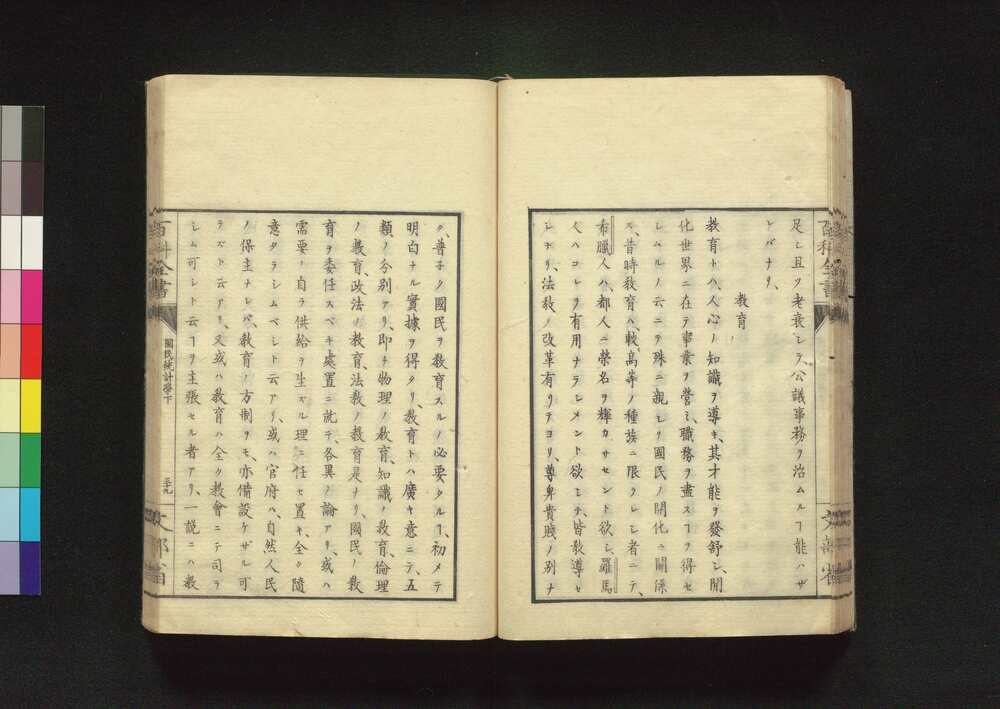 足シ且ツ老衰シテ、公議事務ヲ治ムルヿ能ハザ
レバナリ、
教育
教育トハ、人心ノ知識ヲ導キ、其才能ヲ發舒シ、開
化世界ニ在テ事業ヲ營ミ、職務ヲ盡スヿヲ得セ
シムルノ云ニテ殊ニ親シク國民ノ開化ニ關係
ス、昔時教育ハ、較高等ノ種族ニ限ラレシ者ニテ、
希臘人ハ、都人ニ榮名ヲ輝カサセント欲シ、羅馬
人ハコレヲ有用ナラシメント欲シテ、皆教導セ
シナリ、法教ノ改革有リテヨリ、尊卑貴賤ノ別ナ
ク、普子ク國民ヲ教育スルノ必要タルヿ、初メテ
明白ナル實據ヲ得タリ、教育トハ廣キ意ニテ、五
類ノ分別アリ、即チ物理ノ教育、知識ノ教育、倫理
ノ教育、政法ノ教育、法教ノ教育是ナリ、國民ノ教
育ヲ委任スベキ處置ニ就テ、各異ノ論アリ、或ハ
需要ノ自ラ供給ヲ生ズル理ニ任セ置キ、全ク隨
意タラシムベシト云アリ、或ハ官府ハ、自然人民
ノ保主ナレバ、教育ノ方制ヲモ、亦備設ケザル可
ラズト云アリ、又或ハ教育ハ全ク教會ニテ司ラ
シム可シト云ヿヲ主張セル者アリ、一説ニハ教
百科全書
國民統計學下
三十九
文部省
百科全書
文部省